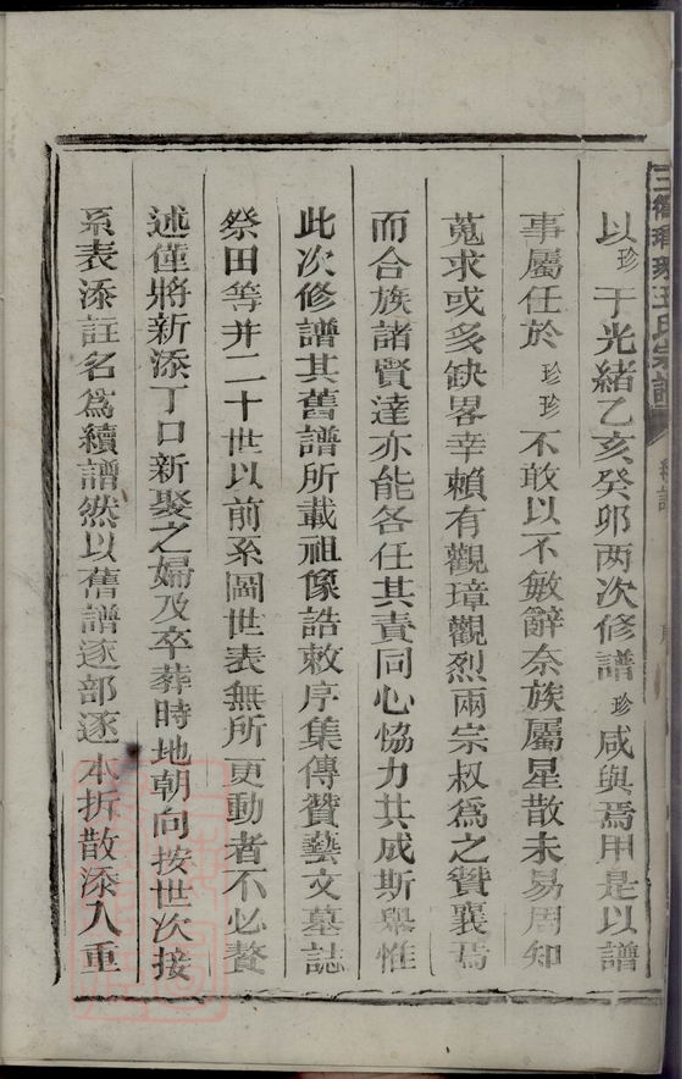 王氏宗譜
以珍于光緒乙亥癸卯两次修譜珍咸與焉用是以譜
事屬任於珍珍不敢以不敏辭奈族屬星散未易周知
蒐求或多缺畧幸賴有觀璋觀烈兩宗叔為之贊襄焉
而合族諸賢達亦能各任其責同心恊力共成斯舉惟
此次修譜其舊譜所載祖像誥敕序集傳贊藝文墓誌
祭田等并二十世以前系圖世表無所更動者不必贅
述僅將新添丁口新娶之婦及卒葬時地朝向按世次接
系表添註名為續譜然以舊譜逐部逐本折散添入重